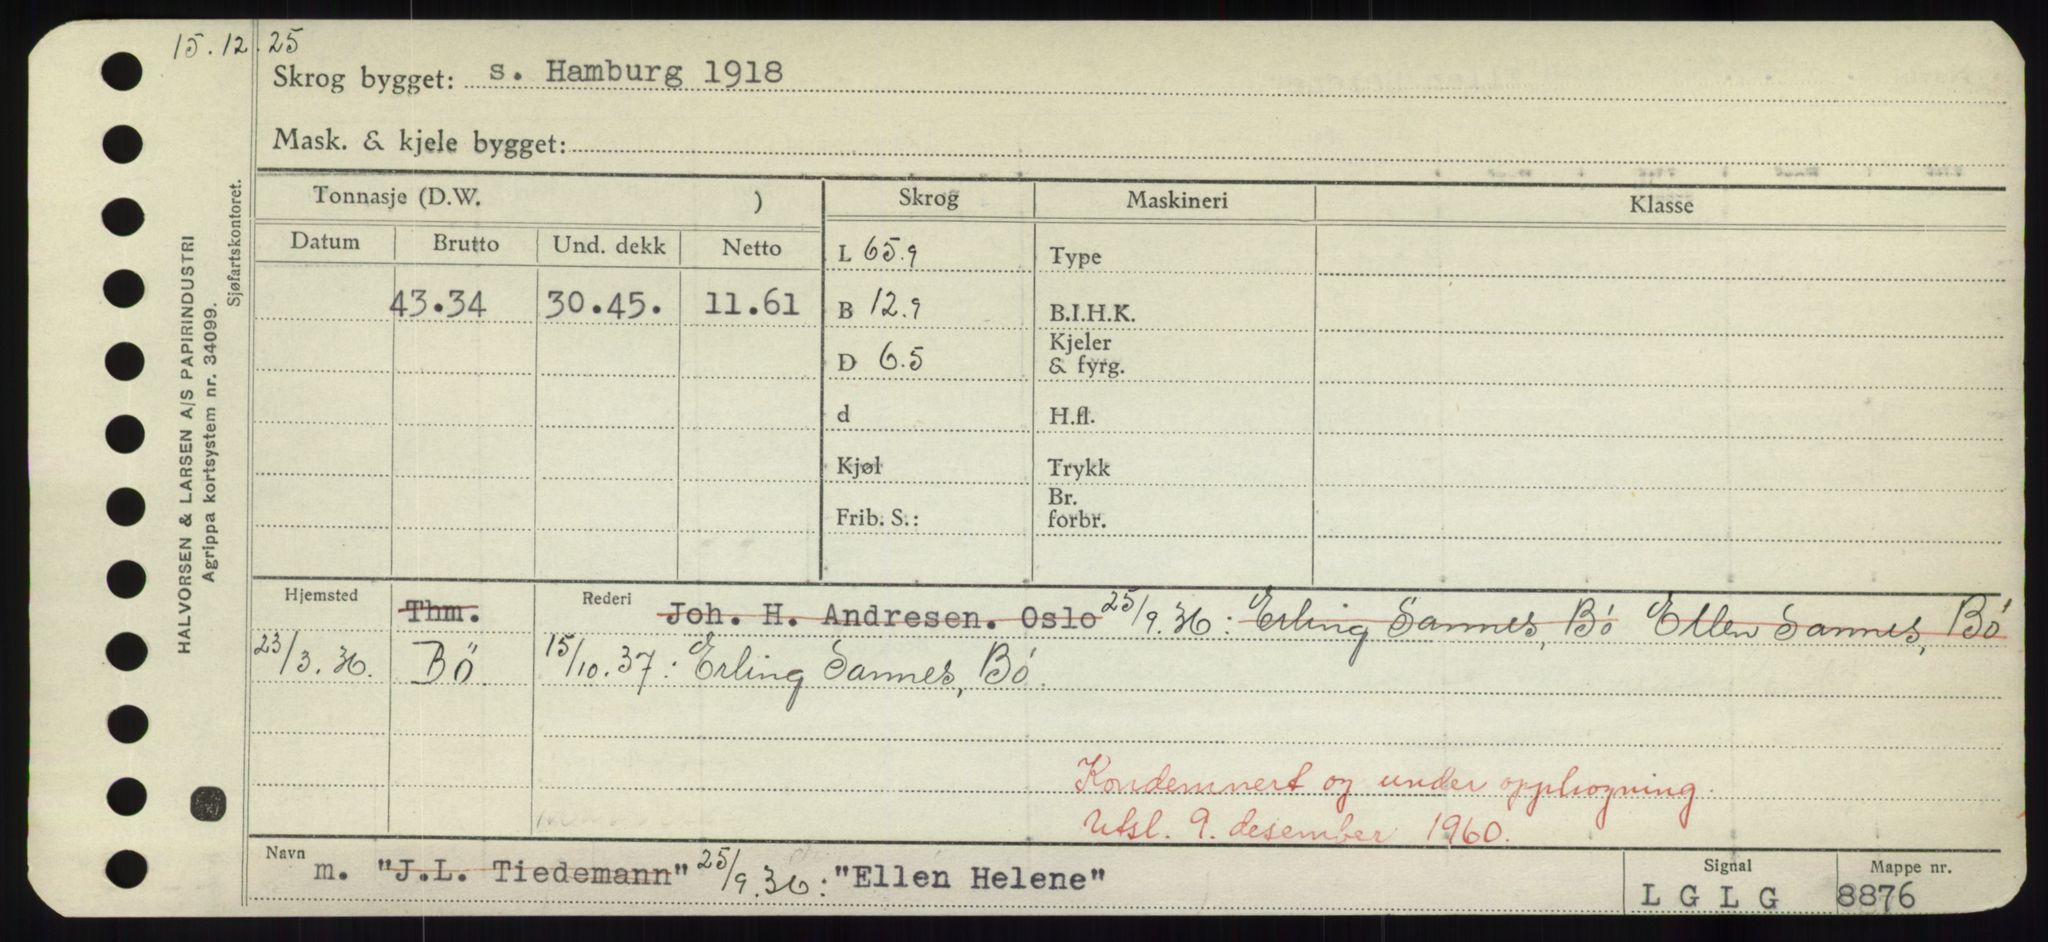 15.12.25
Skrog bygget: s. Hamburg 1918
Mask. & kjele bygget:
HALVORSEN & LARSEN A/S PAPIRINDUSTRI
Agrippa kortsystem nr. 34099.
Sjøfartskontoret.
Tonnasje (D.W. ) Skrog Maskineri Klasse
Datum Brutto Und. dekk Netto L 65.9 Type
43.34 30.45. 11.61 B 12.9 B.I.H.K.
D 6.5 Kjeler & fyrg.
d H.fl.
Kjøl Trykk
Frib. S.: Br. forbr.
Hjemsted Thm. Rederi Joh. H. Andresen. Oslo 25/9.36: Erling Sannes, Bö Ellen Sannes, Bö
23/3.36. Bö 15/10.37: Erling Sannes, Bö.
Kondemnert og under opphogning.
Utsl. 9. desember 1960.
Navn m. "J.L. Tiedemann" 25/9.36: "Ellen Helene" Signal LGLG Mappe nr. 8876